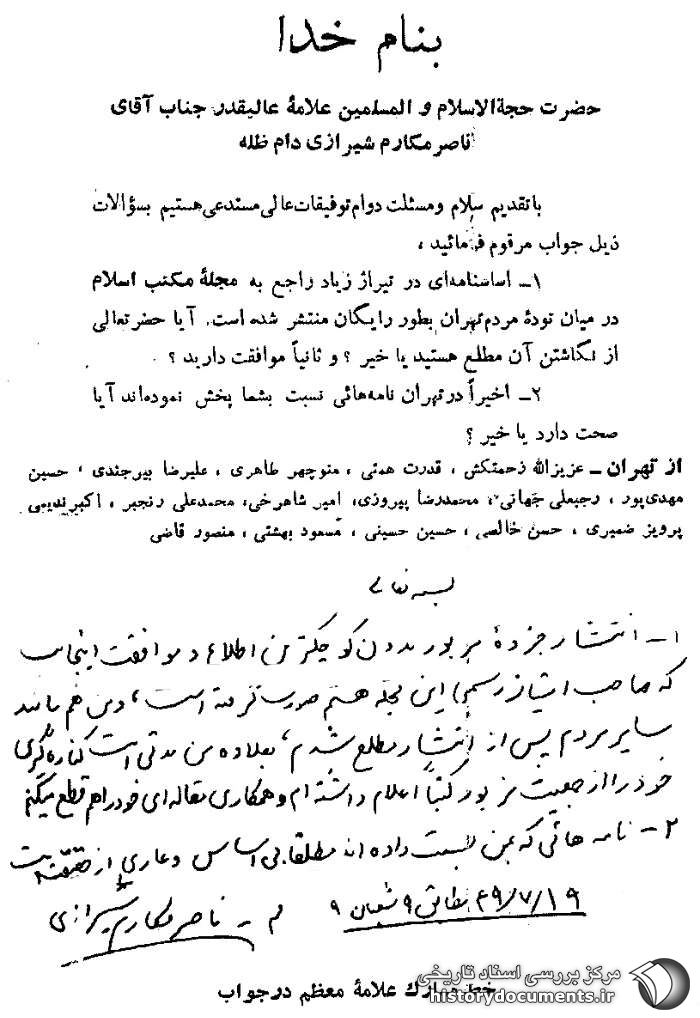 بنام خدا
حضرت حجةالاسلام و المسلمین علامهٔ عالیقدر جناب آقای
ناصر مکارم شیرازی دام ظله
با تقدیم سلام و مسئلت دوام توفیقات عالی مستدعی هستیم بسؤالات
ذیل جواب مرقوم فرمائید ،
۱ــ اساسنامه‌ای در تیراژ زیاد راجع به مجلهٔ مکتب اسلام
در میان تودهٔ مردم تهران بطور رایگان منتشر شده است. آیا حضرتعالی
از نگاشتن آن مطلع هستید یا خیر ؟ و ثانیاً موافقت دارید ؟
۲ــ اخیراً در تهران نامه‌هائی نسبت بشما پخش نموده‌اند آیا
صحت دارد یا خیر ؟
از تهران ــ عزیزالله زحمتکش ، قدرت همتی ، منوچهر طاهری ، علیرضا بیرجندی ، حسین
مهدی‌پور ، رجبعلی جهانی ، محمدرضا پیروزی، امیر شاهرخی، محمدعلی رنجبر ، اکبر ندیمی
پرویز ضمیری ، حسن خالصی ، حسین حسینی ، مسعود بهشتی ، منصور قاضی
بسمه تعالی
۱ــ انتشار جزوهٔ مزبور بدون کوچکترین اطلاع و موافقت اینجانب
که صاحب امتیاز رسمی این مجله هستم صورت گرفته است ، و من هم مانند
سایر مردم پس از انتشار مطلع شدم ، بعلاوه من مدتی است کناره‌گیری
خود را از جمعیت مزبور کتباً اعلام داشته‌ام و همکاری مقاله‌ای خود را هم قطع میکنم
۲ــ نامه هائی که بمن نسبت داده اند مطلقا بی اساس و عاری از حقیقت است
۴۹/۷/۱۹ مطابق ۹ شعبان ۹
م ــ ناصر مکارم شیرازی
خط مبارک علامهٔ معظم در جواب
مرکز بررسی اسناد تاریخی
historydocuments.ir